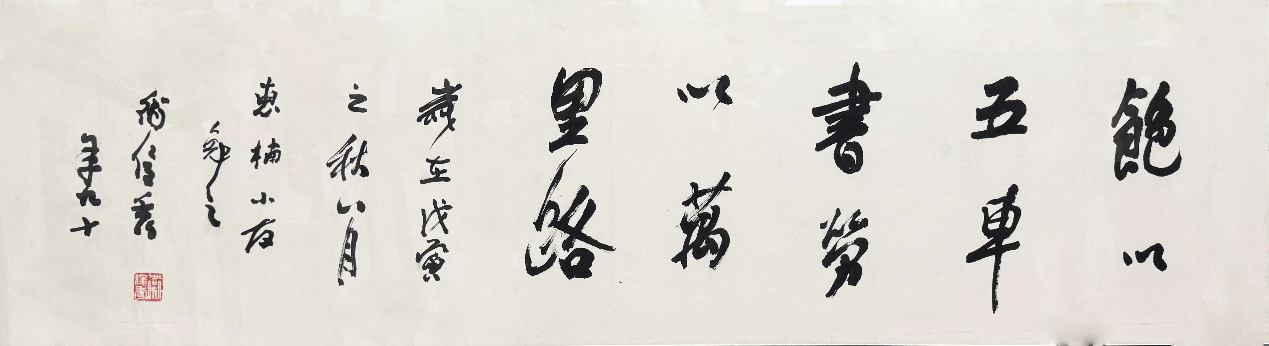 飽以
五車
書勞
以萬
里路
歲在戊寅
之秋八月
惠楠小友
勉之
衛俊秀
年九十